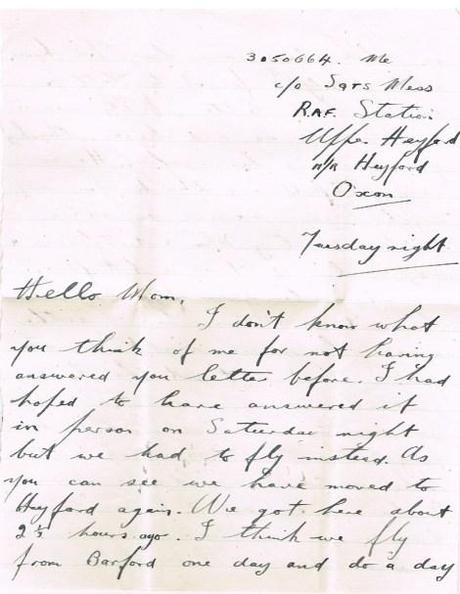 3050664. Me
c/o Sgts Mess
R.A.F. Station
Upper Heyford
n/r Heyford
Oxon
Tuesday night
Hello Mom,
I don't know what
you think of me for not having
answered you letter before. I had
hoped to have answered it
in person on Saturday night
but we had to fly instead. As
you can see we have moved to
Heyford again. We got here about
2½ hours ago. I think we fly
from Barford one day and do a day